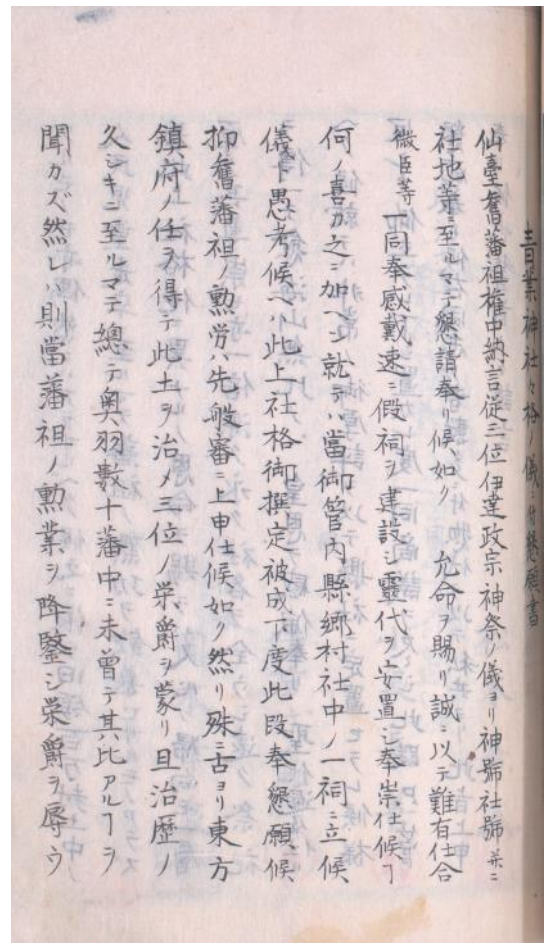 青葉神社々格ノ儀ニ付懇願書
仙臺舊藩祖權中納言從三位伊達政宗神祭ノ儀ヨリ神號社號並ニ
社地等ニ至ルマテ懇請奉リ候如ク 允命ヲ賜リ誠ニ以テ難有仕合
微臣等一同奉感戴速ニ假祠ヲ建設シ靈代ヲ安置シ奉崇仕候ヿ
何ノ喜カ之ニ加ヘン就テハ當御管内縣郷村社中ノ一祠ニ立候
儀ト愚考候ヘハ此上社格御撰定被成下度此段奉懇願候
抑舊藩祖ノ勲労ハ先般審ニ上申仕候如ク然リ殊ニ古ヨリ東方
鎮府ノ任ヲ得テ此土ヲ治メ三位ノ栄爵ヲ蒙リ且治歴ノ
久シキニ至ルマテ總テ奥羽數十藩中ニ未曽テ其比アルヿヲ
聞カズ然レハ則當藩祖ノ勲業ヲ降鑒シ栄爵ヲ辱ウ